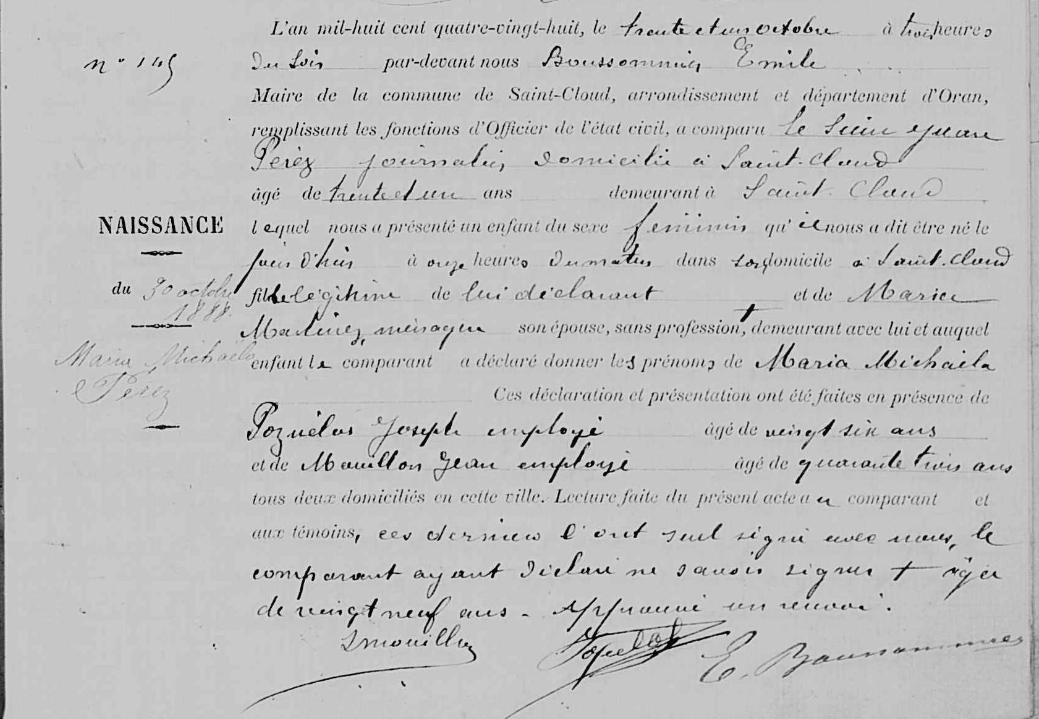 L'an mil-huit cent quatre-vingt-huit, le trente et un octobre à trois heures
n° 145
du soir par-devant nous Boussommier Emile
Maire de la commune de Saint-Cloud, arrondissement et département d'Oran,
remplissant les fonctions d'Officier de l'état civil, a comparu le sieur
Pérez journalier, domicilié à Saint-Cloud
âgé de trente et un ans demeurant à Saint-Cloud
NAISSANCE
lequel nous a présenté un enfant du sexe féminin qu'il nous a dit être né le
jour d'hier à onze heures du matin dans son domicile à Saint-Cloud
du 30 octobre
1888
fille légitime de lui déclarant et de Maria
Martinez, ménagère son épouse, sans profession, + demeurant avec lui et auquel
Maria Michaela
Pérez
enfant le comparant a déclaré donner les prénoms de Maria Michaela
Ces déclaration et présentation ont été faites en présence de
Pozuélos Joseph employé âgé de vingt six ans
et de Mouillon Jean employé âgé de quarante trois ans
tous deux domiciliés en cette ville. Lecture faite du présent acte au comparant et
aux témoins, ces derniers l'ont seul signé avec nous, le
comparant ayant déclaré ne savoir signer + âgée
de vingt neuf ans - Approuvé un renvoi.
Jmouillon
E. Boussommier